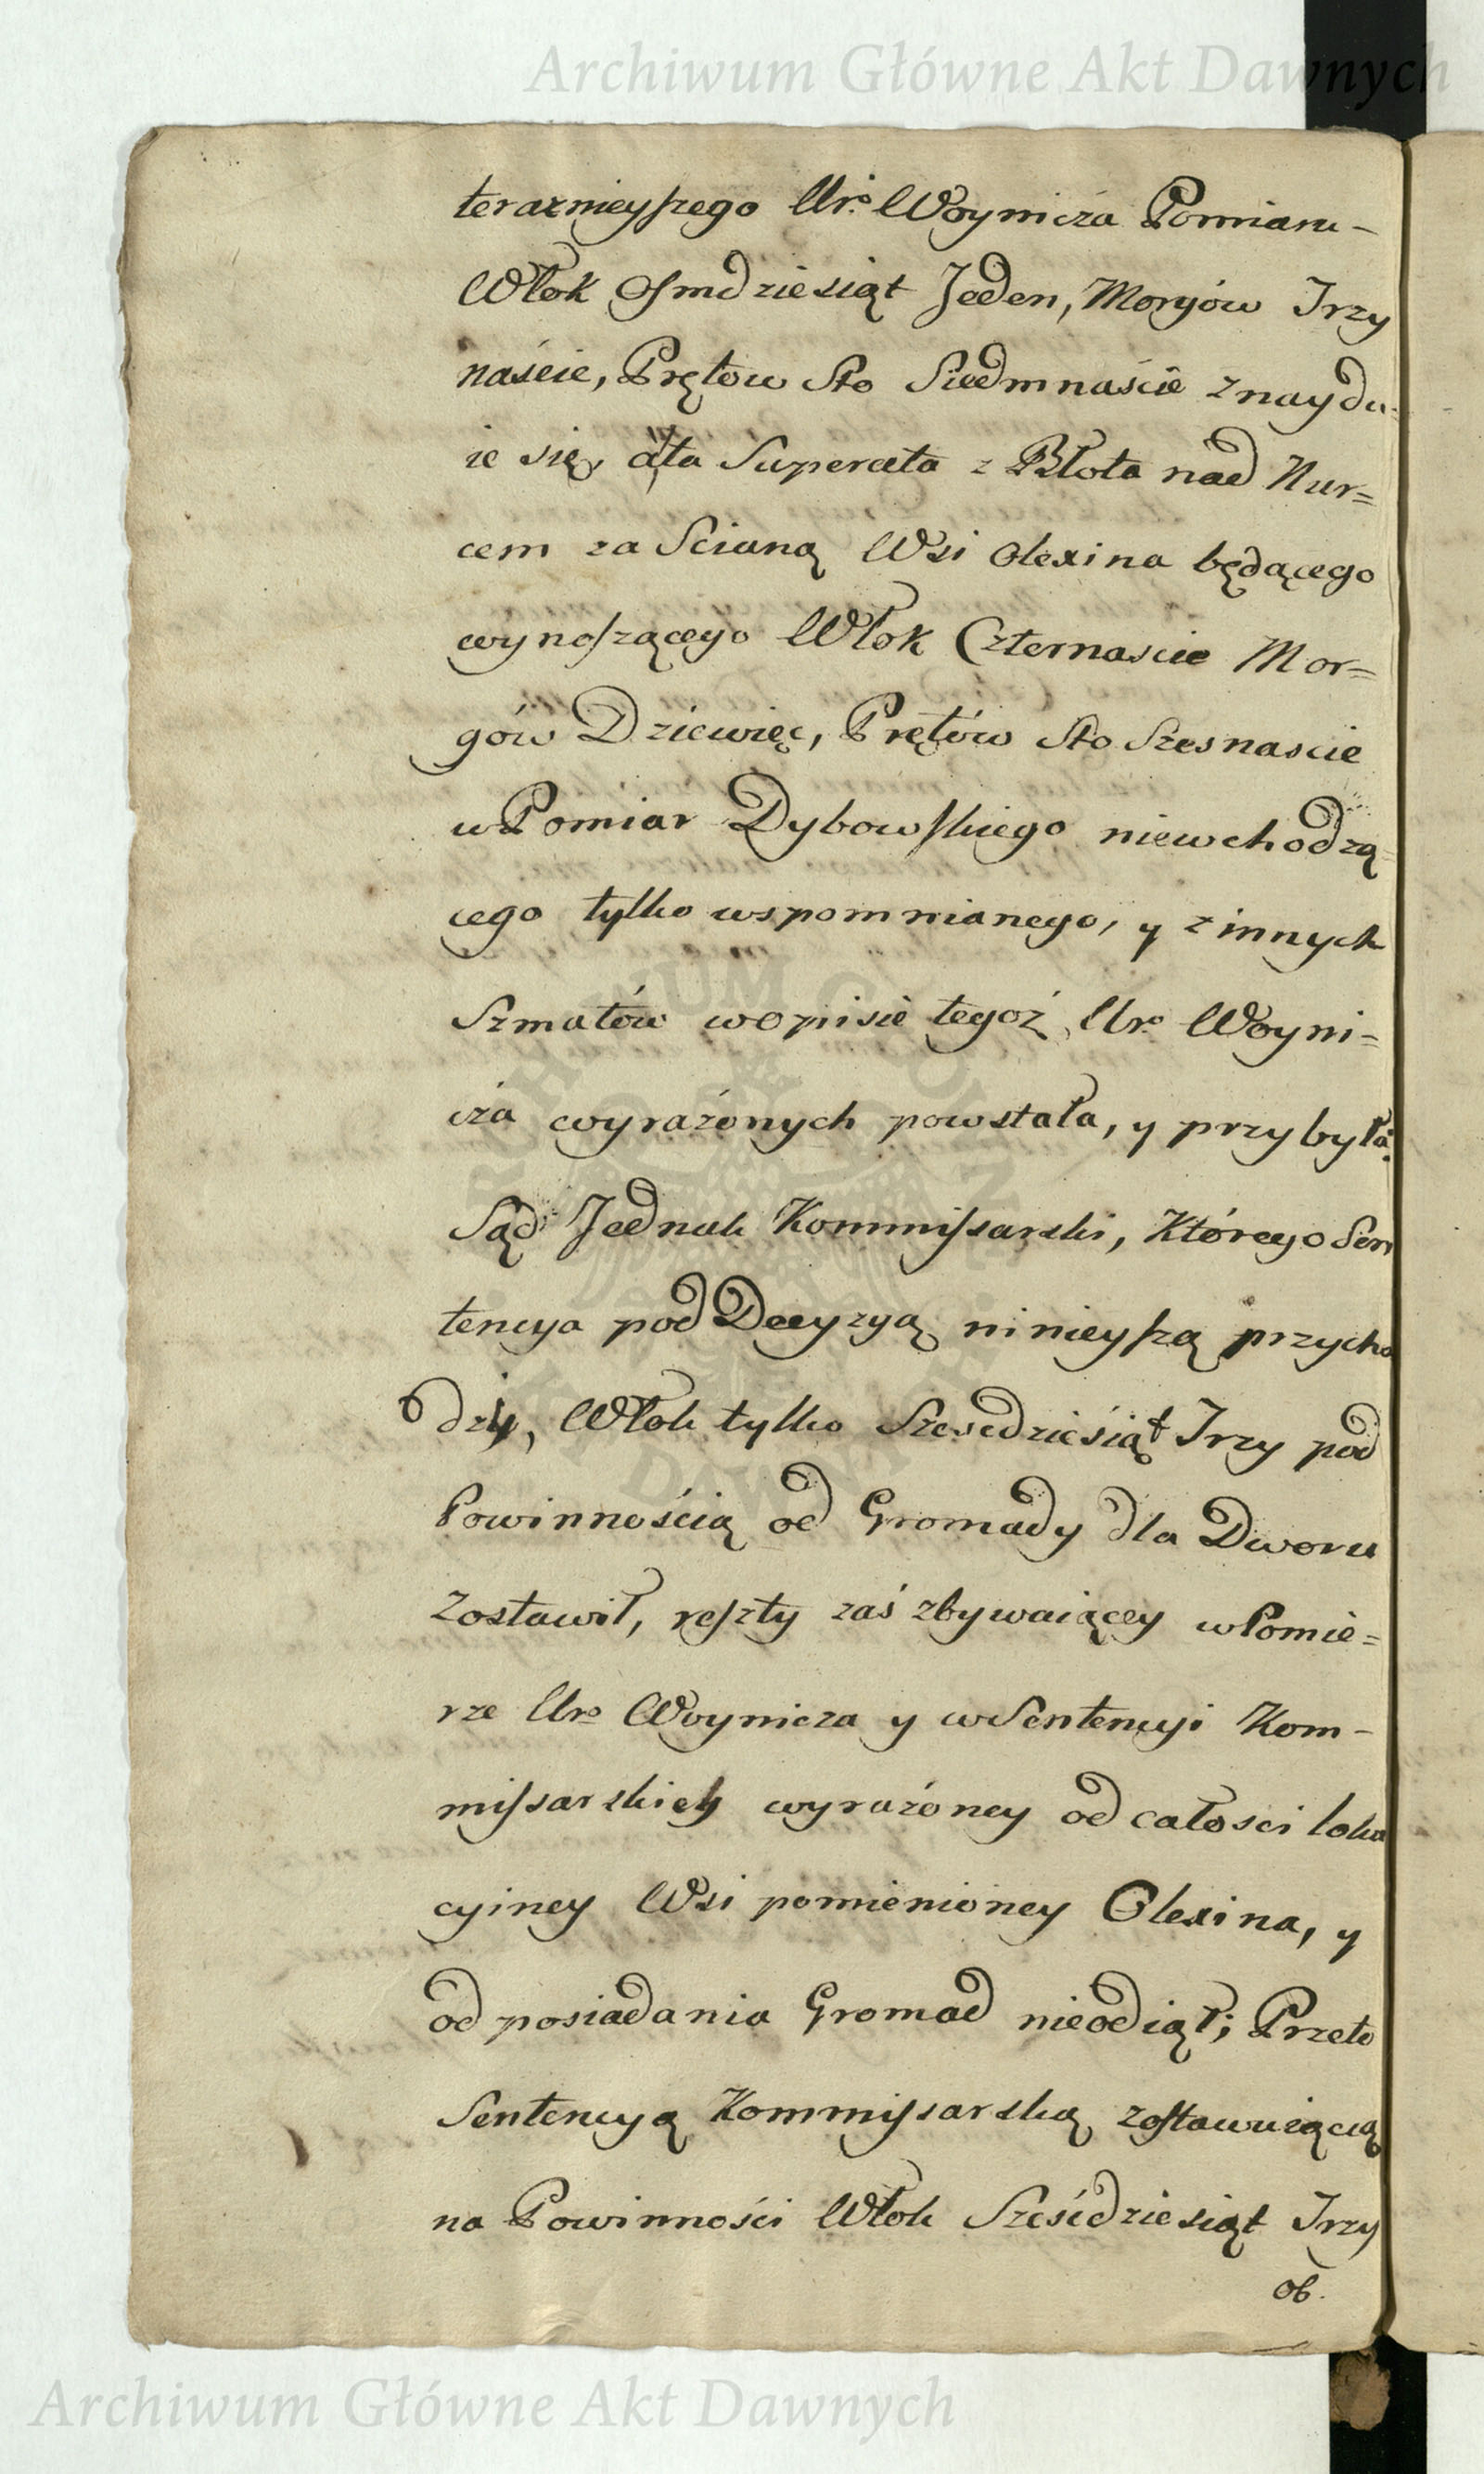 Archiwum Główne Akt Dawnych
teraznieyszego Uro Woynicza Pomiaru-
Włok Osmdziesiąt Jeden, Morgów Trzy
naście, Prętow Sto Siedmnaście znaydu-
ie się, a ta Supereta z Błota nad Nur=
cem za Scianą Wsi Olexina będącego
wynoszącego Włok Czternascie Mor=
gów Dziewięc, Prętów Sto Szesnascie
w Pomiar Dybowskiego niewchodzą-
cego tylko wspomnianego, y z innych
Szmatów w opisie tegoż Uro Woyni=
cza wyrażonych powstała, y przybyła.
Sąd Jednak Kommissarski, Którego Sen
tencya pod Decyzyą ninieyszą przycho
dzi, Włok tylko Szescdziesiąt Trzy pod
Powinnością od Gromady dla Dworu
Zostawił, reszty zaś zbywaiącey w Pomie=
rze Uro Woynicza y w Sentencyi Kom-
missarskiey wyrażoney od całosci loka
cyiney Wsi pomienioney Olexina, y
od posiadania Gromad nieodiął; Przeto
Sentencyą Kommissarską zostawuiącą
na Powinności Włok Sześcdziesiąt Trzy
ob.
Archiwum Główne Akt Dawnych